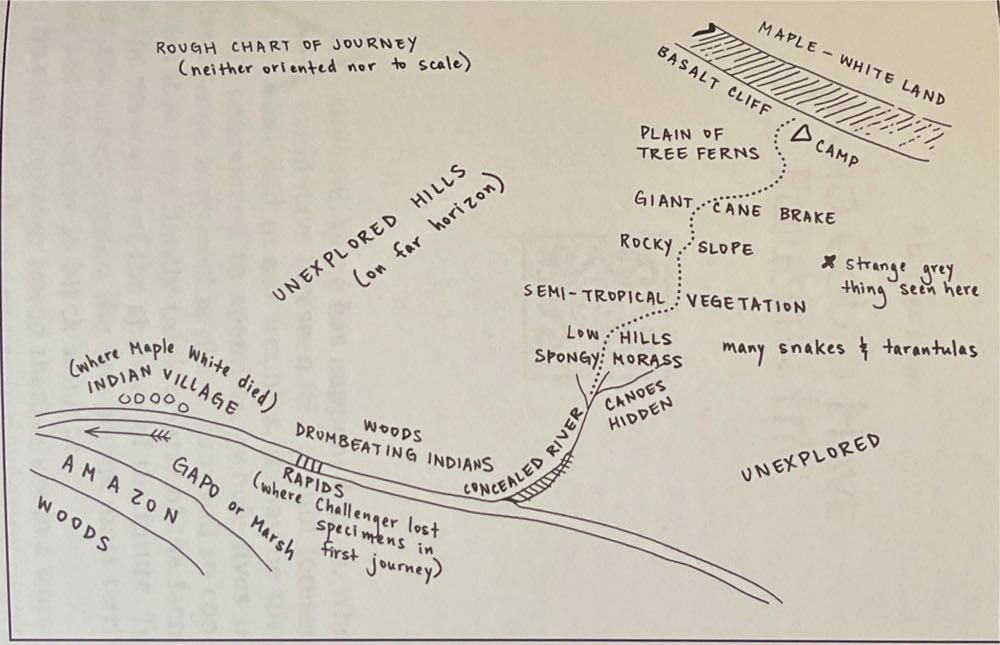 ROUGH CHART OF JOURNEY
(neither oriented nor to scale)
MAPLE-WHITE LAND
BASALT CLIFF
CAMP
PLAIN OF
TREE FERNS
GIANT CANE BRAKE
ROCKY SLOPE
UNEXPLORED HILLS
(on far horizon)
x strange grey
thing seen here
SEMI-TROPICAL VEGETATION
LOW HILLS
SPONGY MORASS
many snakes & tarantulas
CANOES
HIDDEN
(where Maple White died)
INDIAN VILLAGE
WOODS
DRUMBEATING INDIANS
CONCEALED RIVER
UNEXPLORED
RAPIDS
(where Challenger lost
specimens in
first journey)
GAPO or Marsh
AMAZON
WOODS